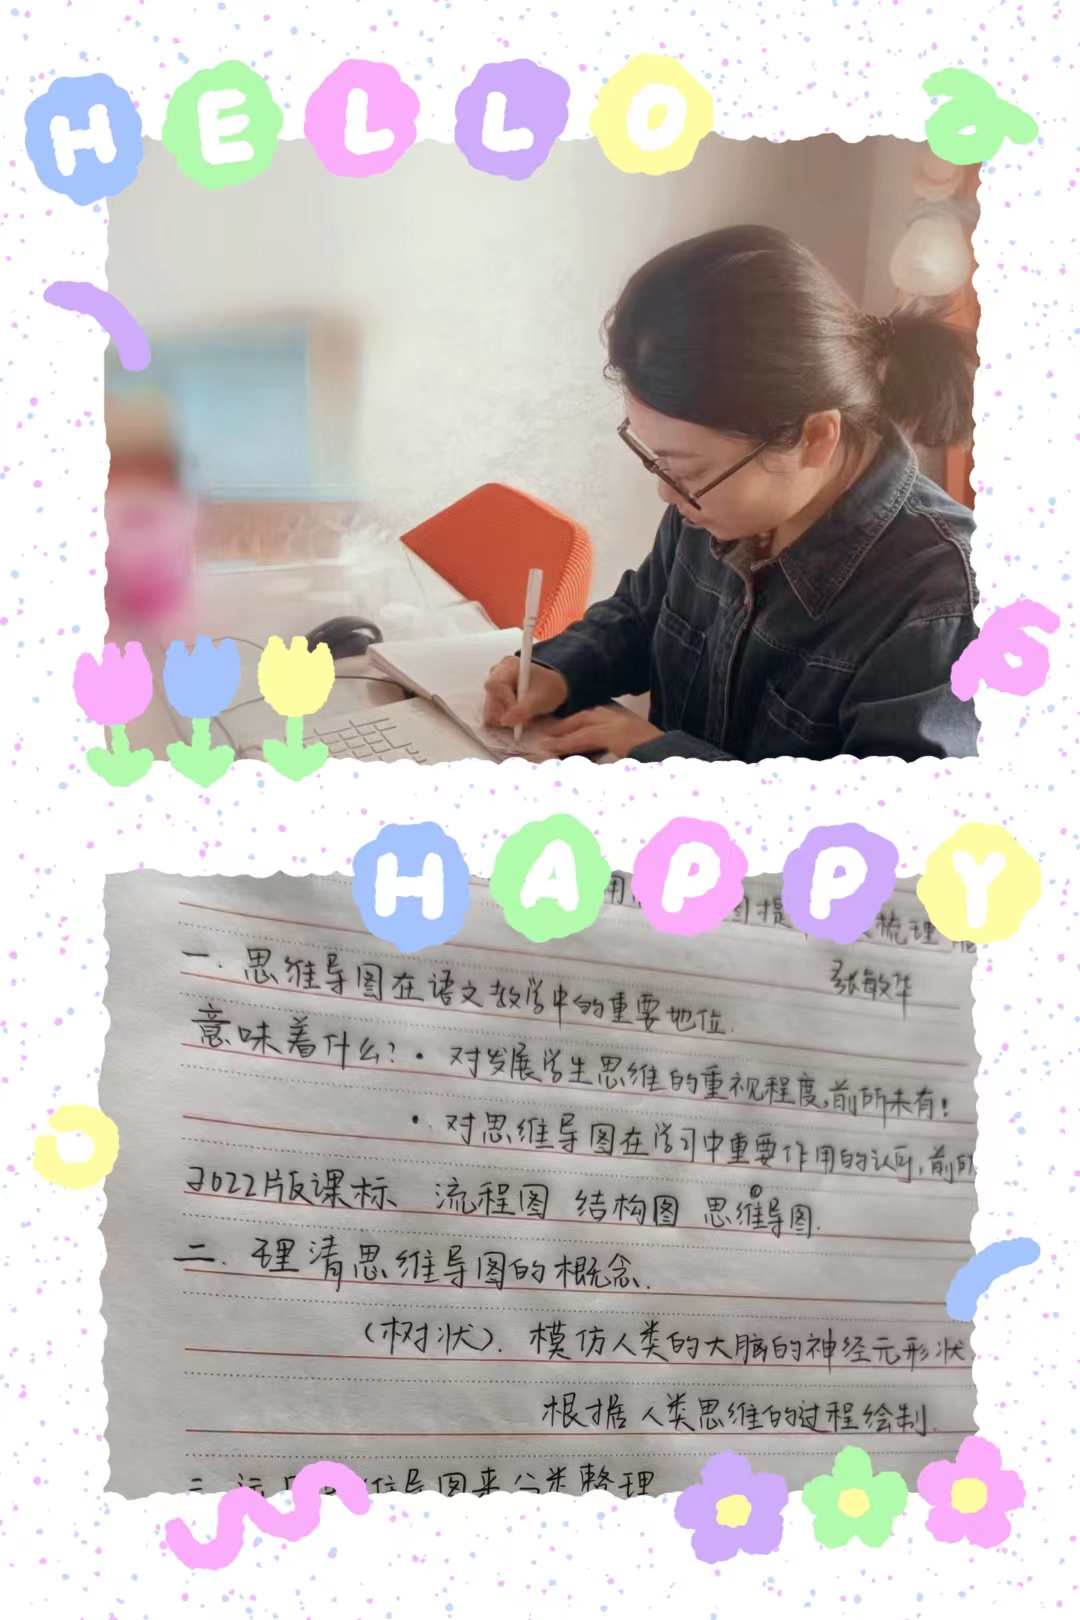 HELLO
HAPPY
图提
梳理
张敏华
一.思维导图在语文教学中的重要地位.
意味着什么?·对发展学生思维的重视程度,前所未有!
·对思维导图在学习中重要作用的认可,前所
2022版课标 流程图 结构图 思维导图.
二.理清思维导图的概念.
(树状).模仿人类的大脑的神经元形状
根据人类思维的过程绘制.
导图来分类整理